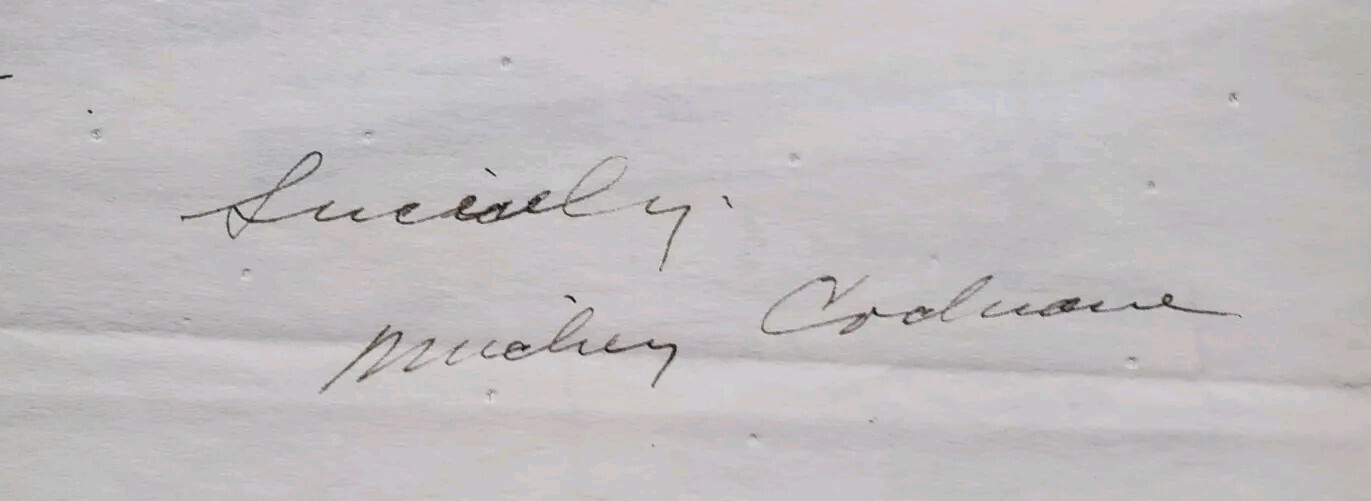 Sincerely.
Mickey Cochrane